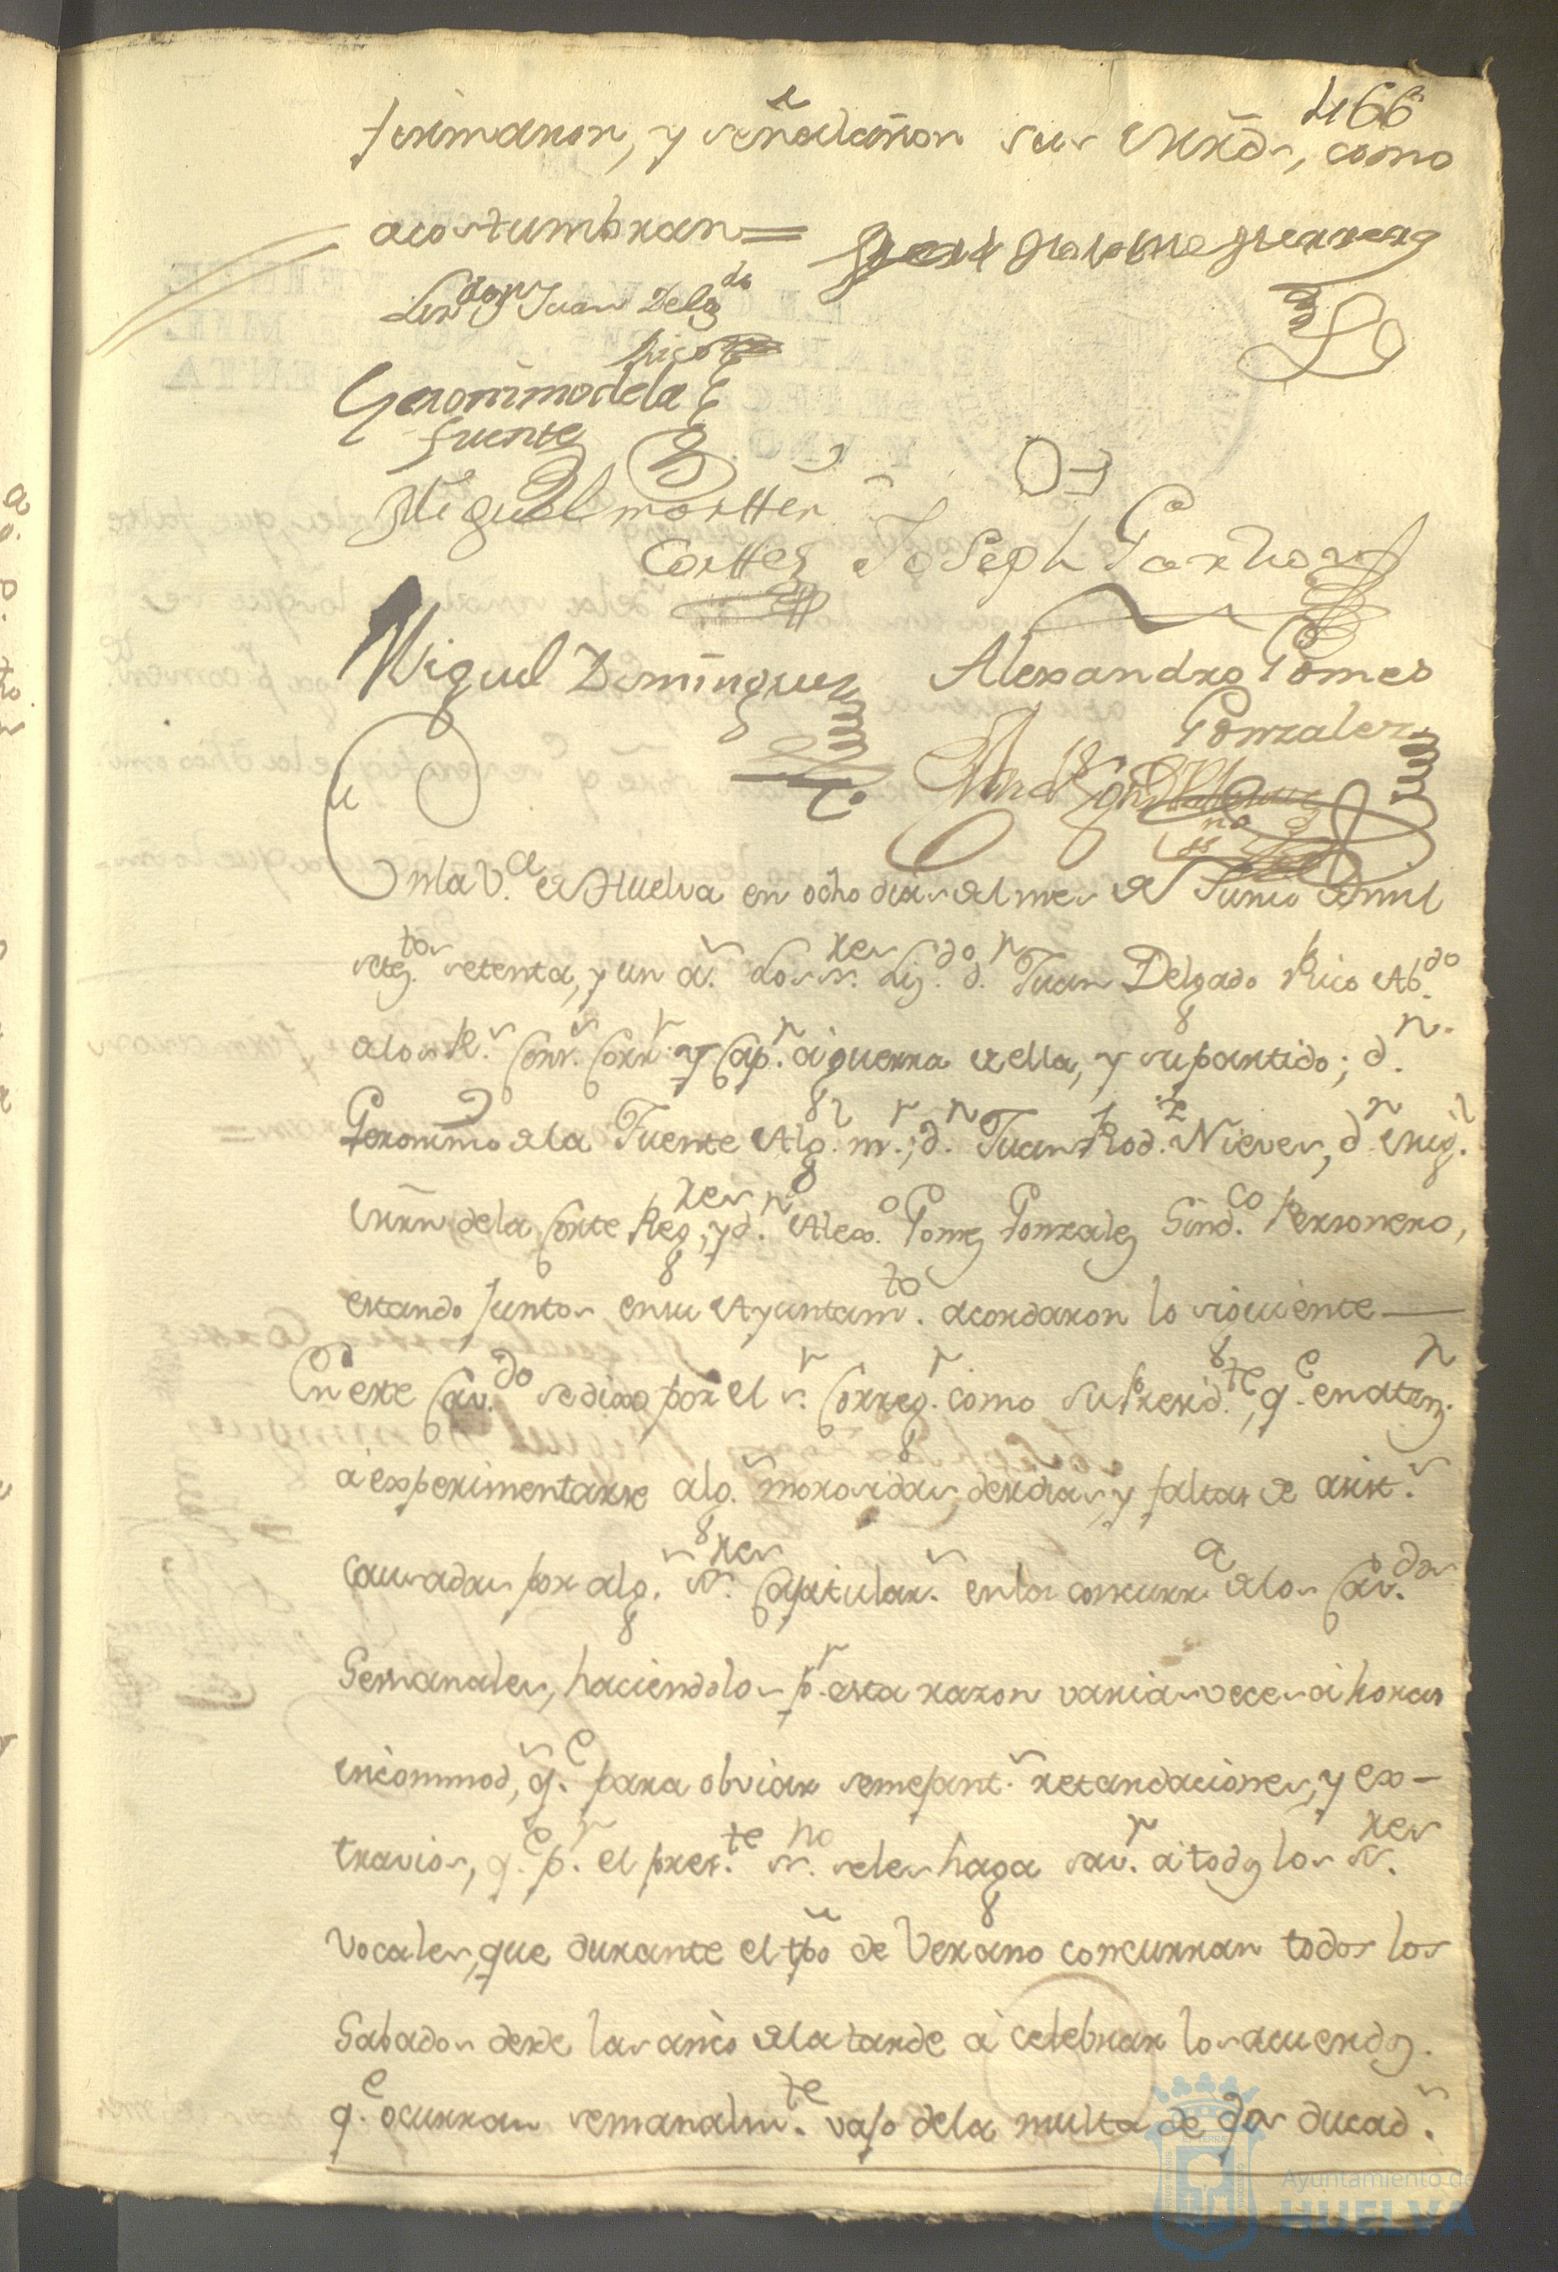 466
firmaron, y señalaron sus Mrds, como
acostumbran=
Lizdo dn Juan Delgdo
Rico
Geronimo de la
fuente
Miguel Martter
Corttes Joseph Garzon
Miguel Dominguez Alexandro Gomes
Gonzalez
En la V.a de Huelva en ocho dias del mes de Junio de mil
setez.tos setenta, y un a.s Los s.res Liz.do d.n Juan Delgado Rico Ab.do
de los R.s Cons.s Corr.r y Cap.n à guerra de ella, y su partido; d.n
Geronimo de la Fuente Alg.l m.r; d.n Juan Rod.z Nieves, d.n Mig.l
Mrn de la Corte Reg.res, y d.n Alex.o Gomez Gonzalez Sind.co Personero,
estando juntos en su Ayuntam.to acordaron lo siguiente —
En este Cav.do se dixo por el s.r Correg.r como su Presid.te, q.e en atenz.n
à experimentarse alg.s morosidades, desidias, y faltas de asist.s
causadas por alg.s s.res Capitular.s en la concurr.a de los Cav.dos
Semanales, haciendolos p.r esta razon varias veces à horas
incommod.s, q.e para obviar semejant.s retardaciones, y ex-
travios, q.e p.r el pres.te ss.no se les haga sav.r à todos los s.res
vocales, que durante el tpo de Verano concurran todos los
Sabados desde las cinco de la tarde à celebrar los acuerdos
q.e ocurran semanalm.te vajo de la multa de dos ducad.s
Ayuntamiento de
HUELVA